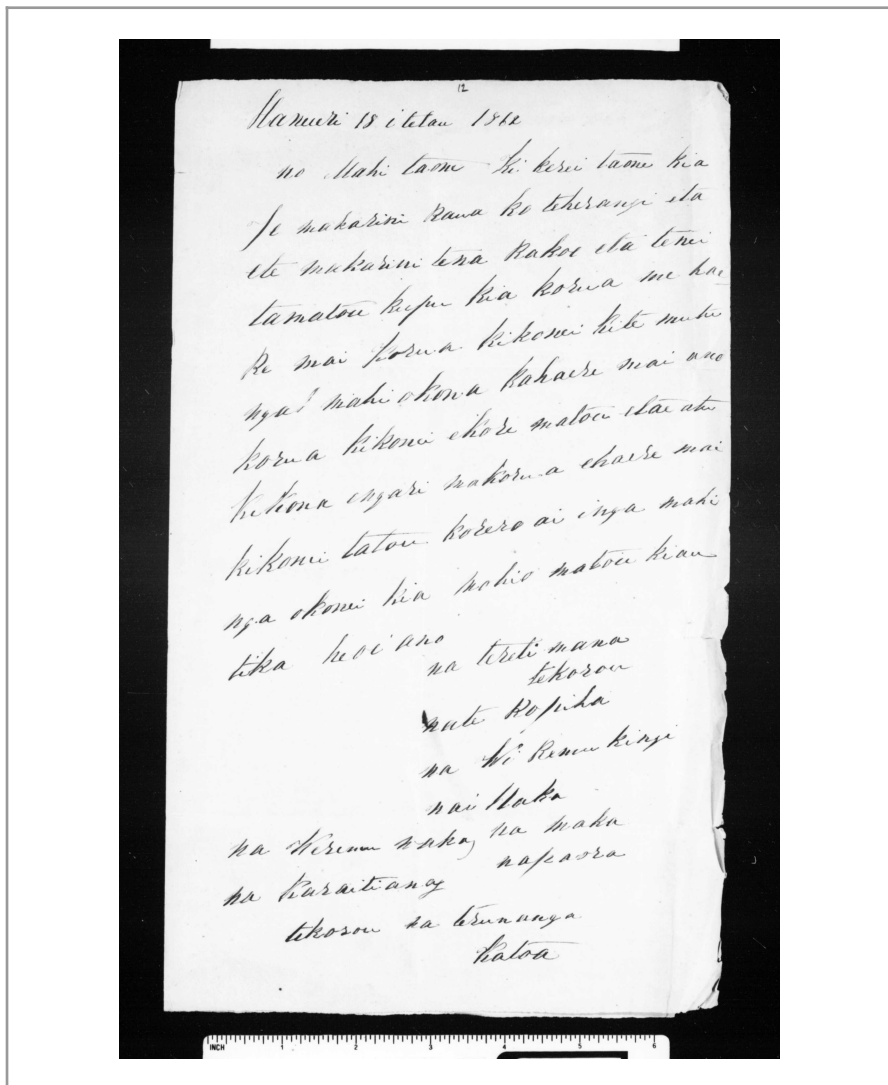 12
Hanueri 18 i tetau 1862
no Mahi taone ki kerei taone kia
te makarini Raua ko teherangi eta
ete makarini tena Rakoe eta tenei
tamatou kupu kia korua me hae
Re mai korua kikonei kite
nga mahi okona kahaere mai ano
korua kikonei ekore matou etae atu
kikona engari makorua ehaere mai
kikonei tatou korero ai i nga mahi
nga okonei kia mohio matou kiau
tika heoi ano
na tereti mana
tekorou
nate Kopiha
na Wi kingi
nai
na Wiremu na maka
na Karaitiana napaora
tekorou na terunanga
katoa
INCH 1 2 3 4 5 6